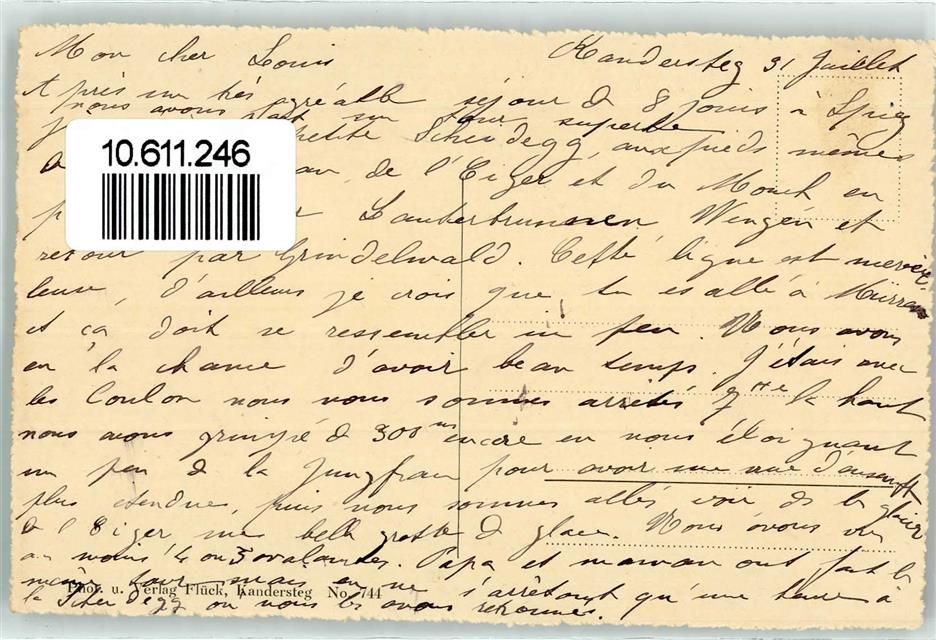 Mon cher Louis Kandersteg 31 Juillet
Après un très agréable séjour de 8 jours à Spiez
nous avons fait un tour superbe
petite Scheidegg, aux pieds mêmes
10.611.246
de l'Eiger et du Mönch en
Lauterbrunnen, Wengen et
retour par Grindelwald. Cette ligne est merveil
leuse, d'ailleurs je crois que tu es allé à Mürren
et ça doit se ressembler un peu. Nous avons
eu la chance d'avoir beau temps. J'étais avec
les Coulon nous nous sommes arrêtés là haut
nous avons grimpé de 300 ms encore en nous éloignant
un peu de la Jungfrau pour avoir une vue d'ensemble
plus étendue, puis nous sommes allés voir de le glacier
de l'Eiger une belle grotte de glace. Nous avons vu
au moins 4 ou 5 avalanches. Papa et maman ont fait le
même tour mais en ne s'arrêtant qu'une heure à
la Scheidegg où nous les avons retrouvés.
Phot. u. Verlag Flück, Kandersteg No. 744